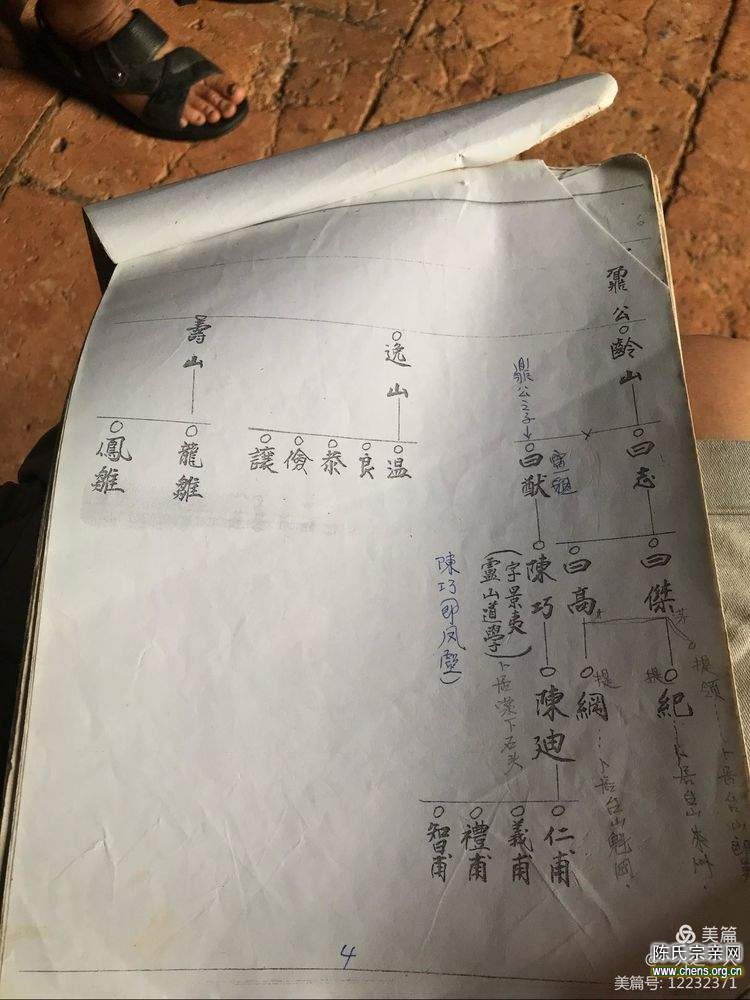 鼐公
齡山
曰志
曰傑
紀
提
提領
卜居台山
卜居台山
曰高
網
提
卜居台山魁岡
鼎公之子
曰猷
陳巧
(字景夷
靈山道學)
陳廸
仁甫
義甫
禮甫
智甫
卜居
下石头
陳巧即凤
逸山
温
良
恭
儉
讓
壽山
龍雛
鳳雛
4
美篇
陈氏宗亲网
www.chens.org.cn
美篇号: 12232371